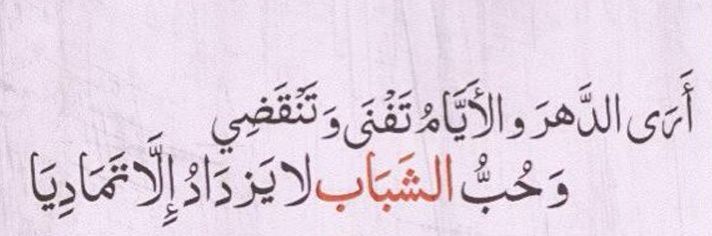 أَرَى الدَّهرَ والأَيَّامُ تَفْنَى وَتَنْقَضِي
وَحُبُّ الشَبَاب لا يَزدَادُ إِلَّا تَمَادِيَا